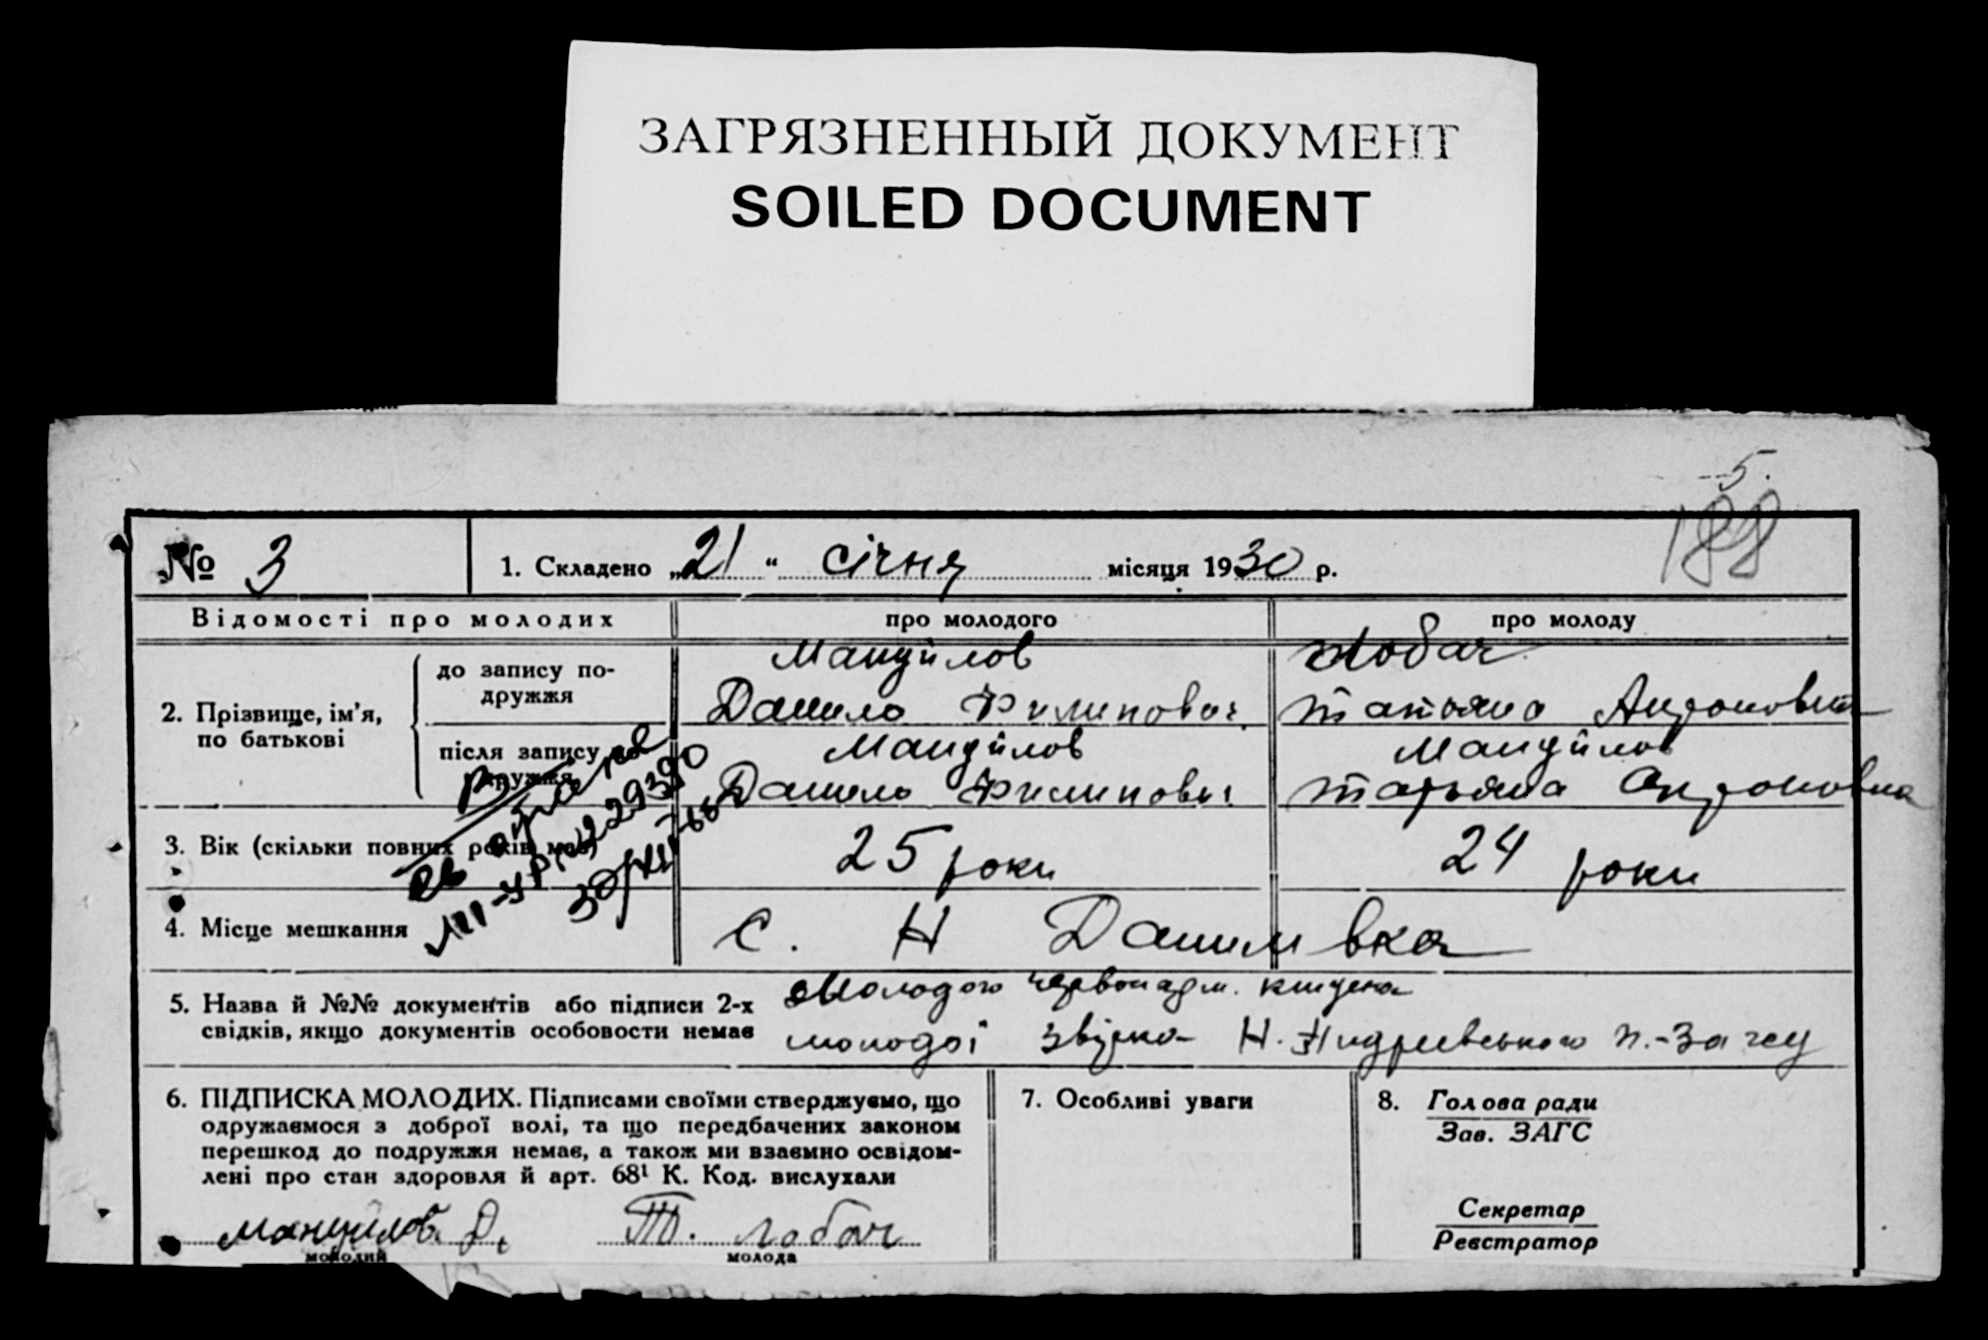 ЗАГРЯЗНЕННЫЙ ДОКУМЕНТ
SOILED DOCUMENT
5.
188
№ 3
1. Складено „21“ січня місяця 1930 р.
Відомості про молодих
про молодого
про молоду
2. Прізвище, ім'я, по батькові
до запису подружжя
Мануйлов
Данило Филипович
Лобач
Татьяна Андроновна
після запису подружжя
Мануйлов
Данило Филипович
Мануйлов
Татьяна Андроновна
3. Вік (скільки повних років має)
25 роки
24 роки
4. Місце мешкання
с. Н Данилівка
5. Назва й №№ документів або підписи 2-х
свідків, якщо документів особовости немає
Молодого
молодої
6. ПІДПИСКА МОЛОДИХ. Підписами своїми стверджуємо, що
одружаємося з доброї волі, та що передбачених законом
перешкод до подружжя немає, а також ми взаємно освідом-
лені про стан здоровля й арт. 68¹ К. Код. вислухали
Мануйлов. Д.
молодий
Т. Лобач
молода
7. Особливі уваги
8. Голова ради
Зав. ЗАГС
Секретар
Реєстратор